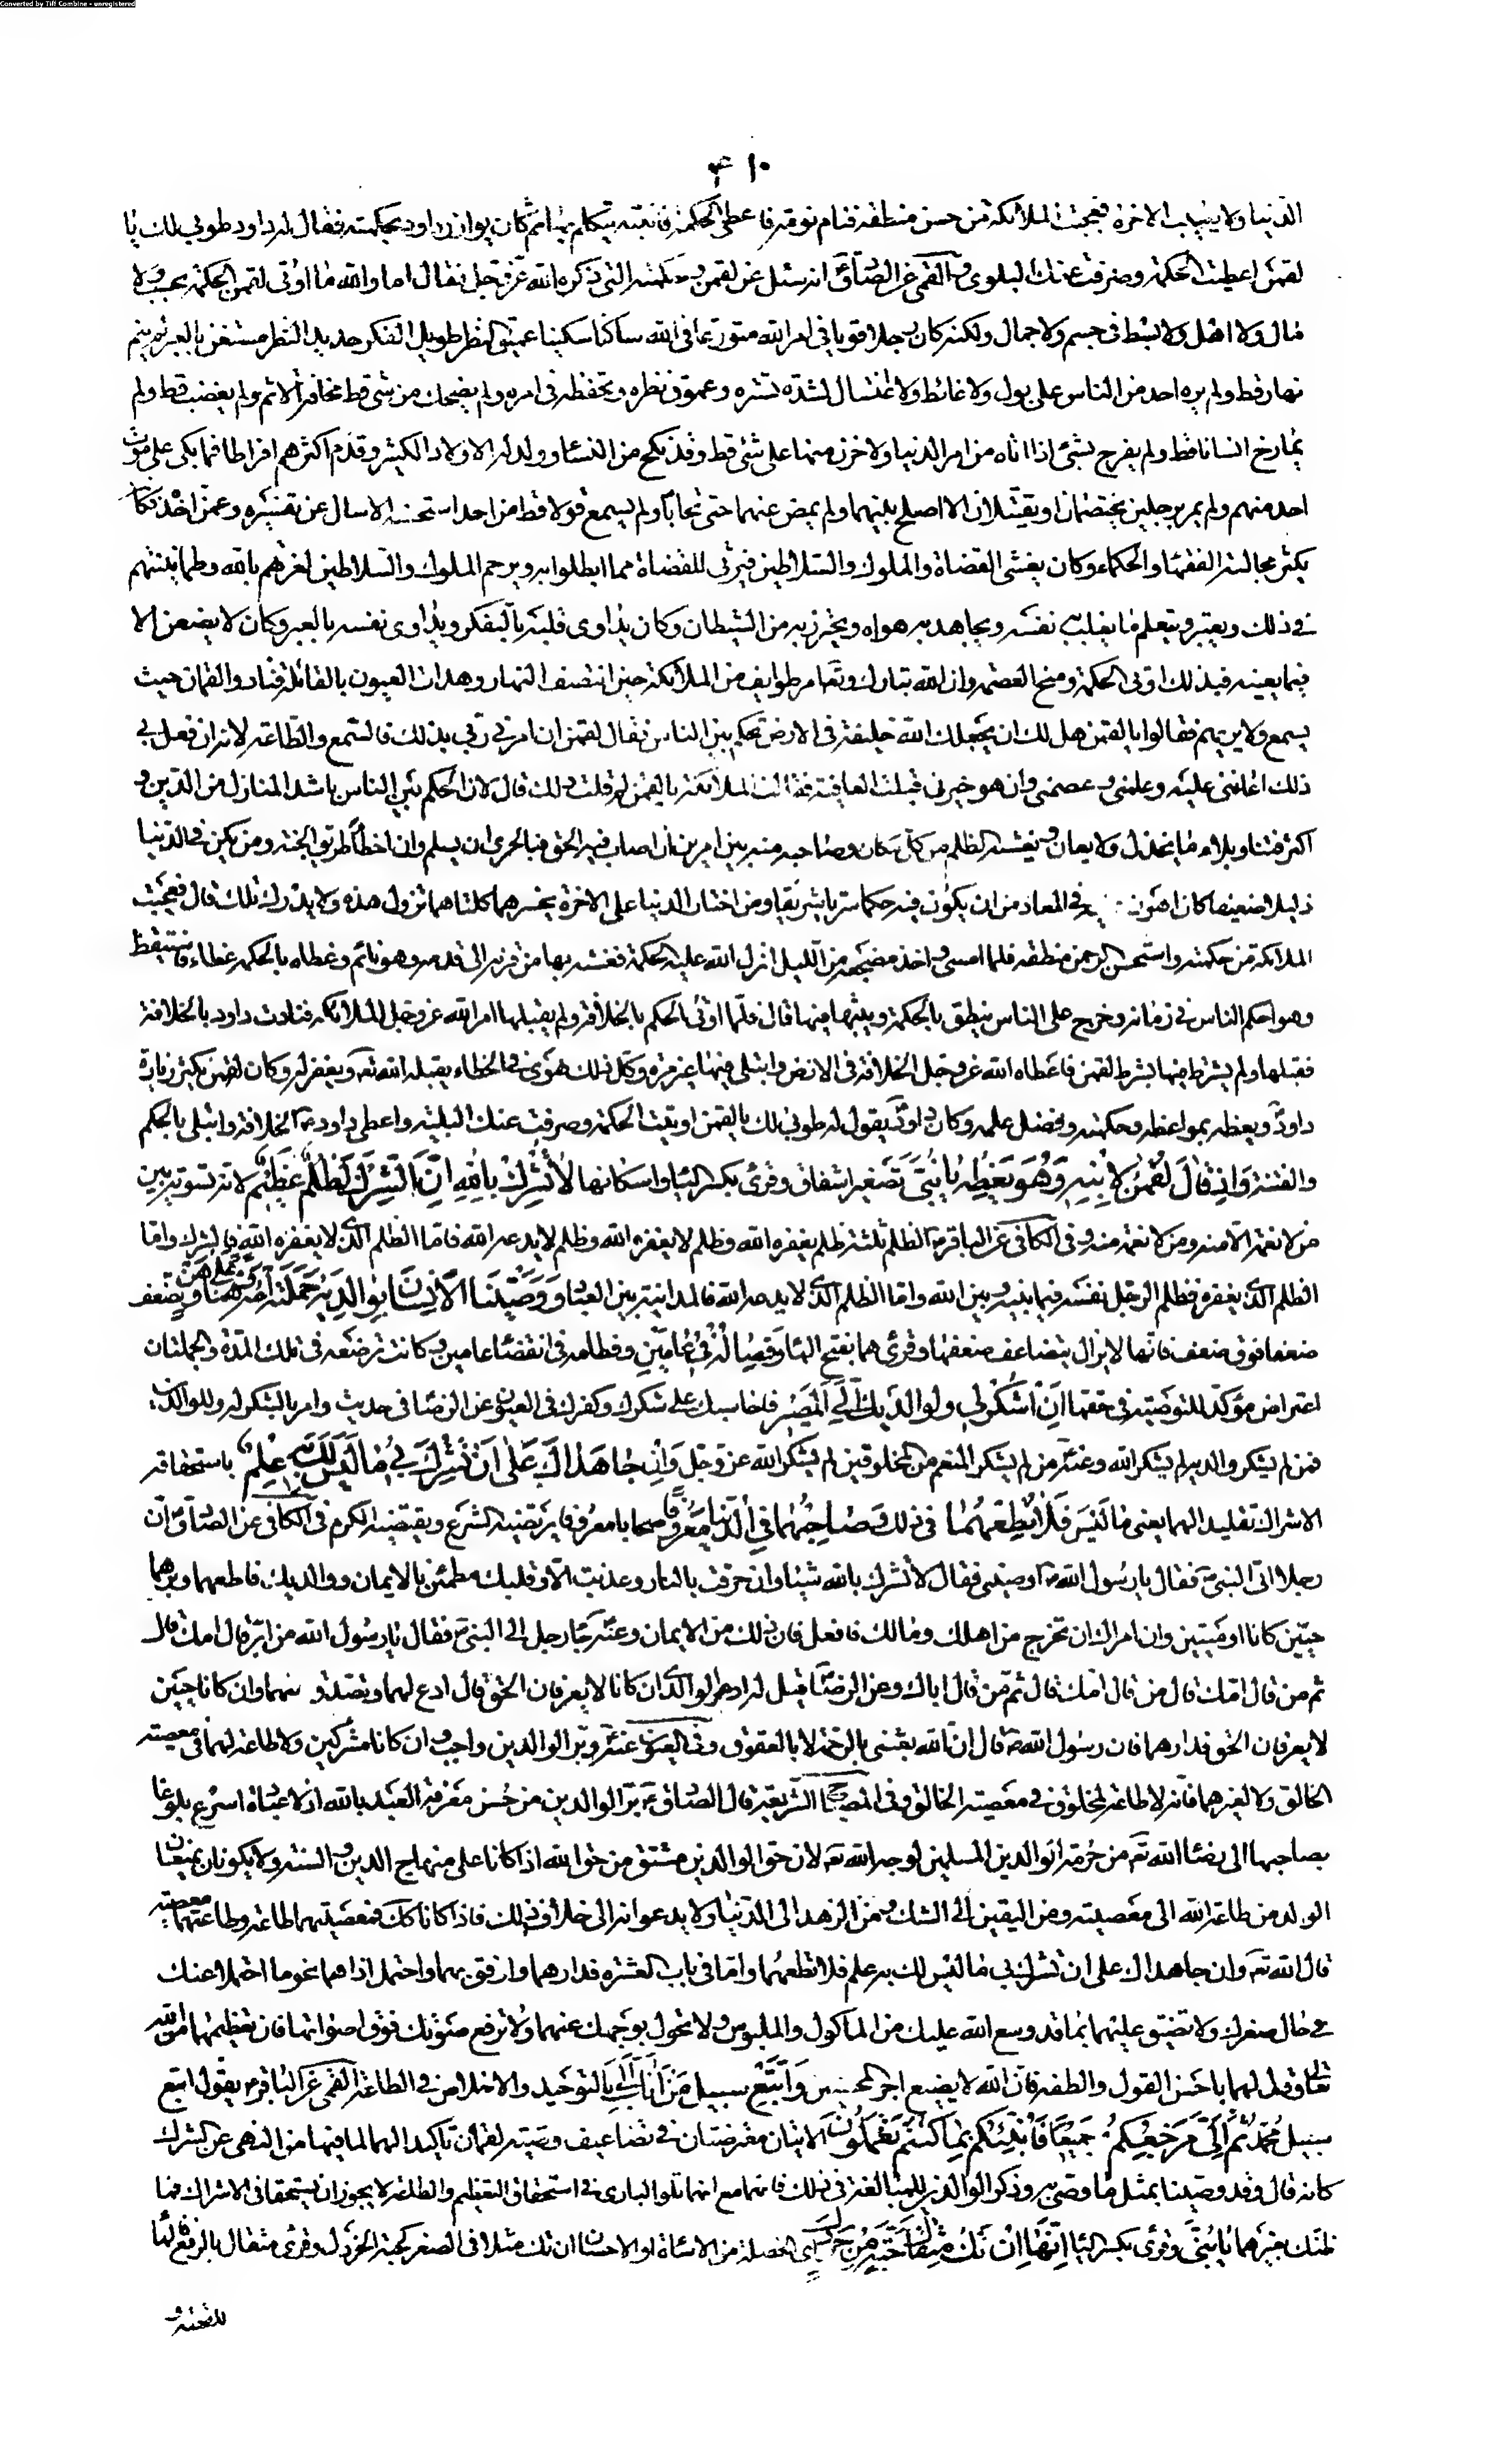 Converted by Tiff Combine - unregistered
٤١٠
الدنيا ولا يصيب الاخرة فتعجبت الملائكة من حسن منطقه فنام نومة فاعطى الحكمة فانتبه يتكلم بها ثم كان يوازر داود بحكمته فقال له داود طوبى لك يا
لقمن اعطيت الحكمة وصرفت عنك البلوى والقمى عن الصادق انه سئل عن لقمن وحكمته التى ذكره الله عز وجل فقال اما والله ما اوتى لقمن الحكمة بحسب ولا
مال ولا اهل ولا بسط فى جسم ولا جمال ولكنه كان رجلا قويا فى امر الله متورعا فى الله ساكتا سكينا عميق النظر طويل الفكر حديد النظر مستغن بالعبر لم ينم
نهار قط ولم يره احد من الناس على بول ولا غائط ولا اغتسال لشدة تستره وعموق نظره وتحفظه فى امره ولم يضحك من شئ قط مخافة الاثم ولم يغضب قط ولم
يمازح انسانا قط ولم يفرح بشئ اذا اتاه من امر الدنيا ولا حزن منها على شئ قط وقد نكح من النساء وولد له الاولاد الكثير وقدم اكثرهم افراطا فما بكى على موت
احد منهم ولم يمر برجلين يختصمان او يقتتلان الا اصلح بينهما ولم يمض عنهما حتى تحابا ولم يسمع قولا قط من احد استحسنه الا سال عن تفسيره وعمن اخذه فكان
يكثر مجالسة الفقهاء والحكماء وكان يغشى القضاة والملوك والسلاطين فيرثى للقضاة مما ابتلوا به ويرحم الملوك والسلاطين لغرتهم بالله وطمانينتهم
فى ذلك ويعتبر ويتعلم ما يغلب به نفسه ويجاهد به هواه ويحترز به من الشيطان وكان يداوى قلبه بالتفكر ويداوى نفسه بالعبر وكان لا يضعن الا
فيما يعينه فبذلك اوتى الحكمة ومنح العصمة وان الله تبارك وتعا امر طوايف من الملائكة حين انتصف النهار وهدات العيون بالقائلة فنادوا لقمان حيث
يسمع ولا يريهم فقالوا يا لقمن هل لك ان يجعلك الله خليفة فى الارض تحكم بين الناس فقال لقمن ان امرنى ربى بذلك فالسمع والطاعة لانه ان فعل بى
ذلك اعاننى عليه وعلمنى وعصمنى وان هو خيرنى قبلت العافية فقالت الملائكة يا لقمن لم قلت ذلك قال لان الحكم بين الناس باشد المنازل من الدين و
اكثر فتنا وبلاء ما يخذل ولا يعان ويغشاه الظلم من كل مكان وصاحبه منه بين امرين ان اصاب فيه الحق فبالحرى ان يسلم وان اخطأ طريق الجنة ومن يكن فى الدنيا
ذليلا ضعيفا كان اهون فى المعاد من ان يكون فيه حكما سريا شريفا ومن اختار الدنيا على الاخرة يخسرهما كلتاهما تزول هذه ولا يدرك تلك قال فعجبت
الملائكة من حكمته واستحسن الرحمن منطقه فلما امسى واخذ مضجعه من الليل انزل الله عليه الحكمة فغشاه بها من قرنه الى قدمه وهو نائم وغطاه بالحكمة غطاء فاستيقظ
وهو احكم الناس فى زمانه وخرج على الناس ينطق بالحكمة ويبثها فيها قال فلما اوتى الحكم بالخلافة ولم يقبلها امر الله عز وجل الملائكة فنادت داود بالخلافة
فقبلها ولم يشرط فيها بشرط لقمن فاعطاه الله عز وجل الخلافة فى الارض وابتلى فيها غير مرة وكل ذلك يهوى فى الخطاء يقبله الله تع ويغفر له وكان لقمن يكثر زيارة
داود ويعظه بمواعظه وحكمته وفضل علمه وكان داود يقول له طوبى لك يا لقمن اوتيت الحكمة وصرفت عنك البلية واعطى داود الخلافة وابتلى بالحكم
والفتنة وَاِذْ قَالَ لُقْمٰنُ لِابْنِهِ وَهُوَ يَعِظُهُ يَا بُنَىَّ تصغير اشفاق وقرئ بكسر الياء واسكانها لَا تُشْرِكْ بِاللهِ اِنَّ الشِّرْكَ لَظُلْمٌ عَظِيْمٌ لانه تسوية بين
من لا نعمة الا منه ومن لا نعمة منه وفى الكافى عن الباقر الظلم ثلثة ظلم يغفره الله وظلم لا يغفره الله وظلم لا يدعه الله فاما الظلم الذى لا يغفره الله فالشرك واما
الظلم الذى يغفره فظلم الرجل نفسه فيما بينه وبين الله واما الظلم الذى لا يدعه الله فالمداينة بين العباد وَوَصَّيْنَا الْاِنْسَانَ بِوَالِدَيْهِ حَمَلَتْهُ اُمُّهُ وَهْنًا عَلٰى وَهْنٍ وتضعف
ضعفا فوق ضعف فانها لا يزال يتضاعف ضعفها وقرئ هما بفتح الهاء وَفِصَالُهُ فِىْ عَامَيْنِ وفطامه فى انقضاء عامين وكانت ترضعه فى تلك المدة والجملتان
اعتراض مؤكد للتوصية فى حقها اَنِ اشْكُرْ لِىْ وَلِوَالِدَيْكَ اِلَىَّ الْمَصِيْرُ فاحاسبك على شكرك وكفرك فى العيون عن الرضا فى حديث وامر بالشكر له وللوالدين
فمن لم يشكر والديه لم يشكر الله وعنه من لم يشكر المنعم من المخلوقين لم يشكر الله عز وجل وَاِنْ جَاهَدَاكَ عَلٰى اَنْ تُشْرِكَ بِىْ مَا لَيْسَ لَكَ بِهِ عِلْمٌ باستحقاقه
الاشراك تقليدا لهما يعنى ما ليس فَلَا تُطِعْهُمَا فى ذلك وَصَاحِبْهُمَا فِى الدُّنْيَا مَعْرُوْفًا صحابا معروفا يرتضيه الشرع ويقتضيه الكرم فى الكافى عن الصادق ان
رجلا اتى النبى فقال يا رسول الله اوصنى فقال لا تشرك بالله شيئا وان حرقت بالنار وعذبت الا وقلبك مطمئن بالايمان ووالديك فاطعهما وبرهما
حيين كانا او ميتين وان امراك ان تخرج من اهلك ومالك فافعل فان ذلك من الايمان وعنه جاء رجل الى النبى فقال يا رسول الله من ابر قال امك قال
ثم من قال امك قال ثم من قال امك قال ثم من قال اباك وعن الرضا قيل له ادعو لوالدى ان كانا لا يعرفان الحق قال ادع لهما وتصدق عنهما وان كانا حيين
لا يعرفان الحق فدارهما فان رسول الله قال ان الله بعثنى بالرحمة لا بالعقوق وفى العيون عنه وبر الوالدين واجب وان كانا مشركين ولا طاعة لهما فى معصية
الخالق ولا لغيرهما فانه لا طاعة لمخلوق فى معصية الخالق وفى المصباح الشريعة قال الصادق بر الوالدين من حسن معرفة العبد بالله اذ لا عبادة اسرع بلوغا
بصاحبها الى رضاء الله تع من حرمة الوالدين المسلمين لوجه الله تع لان حق الوالدين مشتق من حق الله اذا كانا على منهاج الدين والسنة ولا يكونان يمنعان
الولد من طاعة الله الى معصيته ومن اليقين الى الشك ومن الزهد الى الدنيا ولا يدعوانه الى خلاف ذلك فاذا كانا كك فمعصيتهما طاعة وطاعتهما معصية
قال الله تع وان جاهداك على ان تشرك بى ما ليس لك به علم فلا تطعهما واما فى باب العشرة فدارهما وارفق بهما واحتمل اذاهما نحو ما احتملا عنك
فى حال صغرك ولا تضيق عليهما بما قد وسع الله عليك من الماكول والملبوس ولا تحول بوجهك عنهما ولا ترفع صوتك فوق اصواتهما فان تعظيمهما من الله
تعالى وقل لهما باحسن القول والطفه فان الله لا يضيع اجر المحسنين وَاتَّبِعْ سَبِيْلَ مَنْ اَنَابَ اِلَىَّ بالتوحيد والاخلاص فى الطاعة القمى عن الباقر يقول اتبع
سبيل محمد ثُمَّ اِلَىَّ مَرْجِعُكُمْ جميعا فَاُنَبِّئُكُمْ بِمَا كُنْتُمْ تَعْمَلُوْنَ الايتان معترضتان فى تضاعيف وصية لقمان تاكيدا لهما لما فيها من النهى عن الشرك
كانه قال وقد وصينا بمثل ما وصى به وذكر الوالدين للمبالغة فى ذلك فانهما مع انهما تلو البارى فى استحقاق التعظيم والطاعة لا يجوز ان يستحقا فى الاشراك فما
ظنك بغيرهما يَا بُنَىَّ وقرئ بكسر الياء اِنَّهَا اِنْ تَكُ مِثْقَالَ حَبَّةٍ مِنْ خَرْدَلٍ اى الخصلة من الاساءة او الاحسان ان تك مثلا فى الصغر كحبة الخردل وقرئ مثقال بالرفع